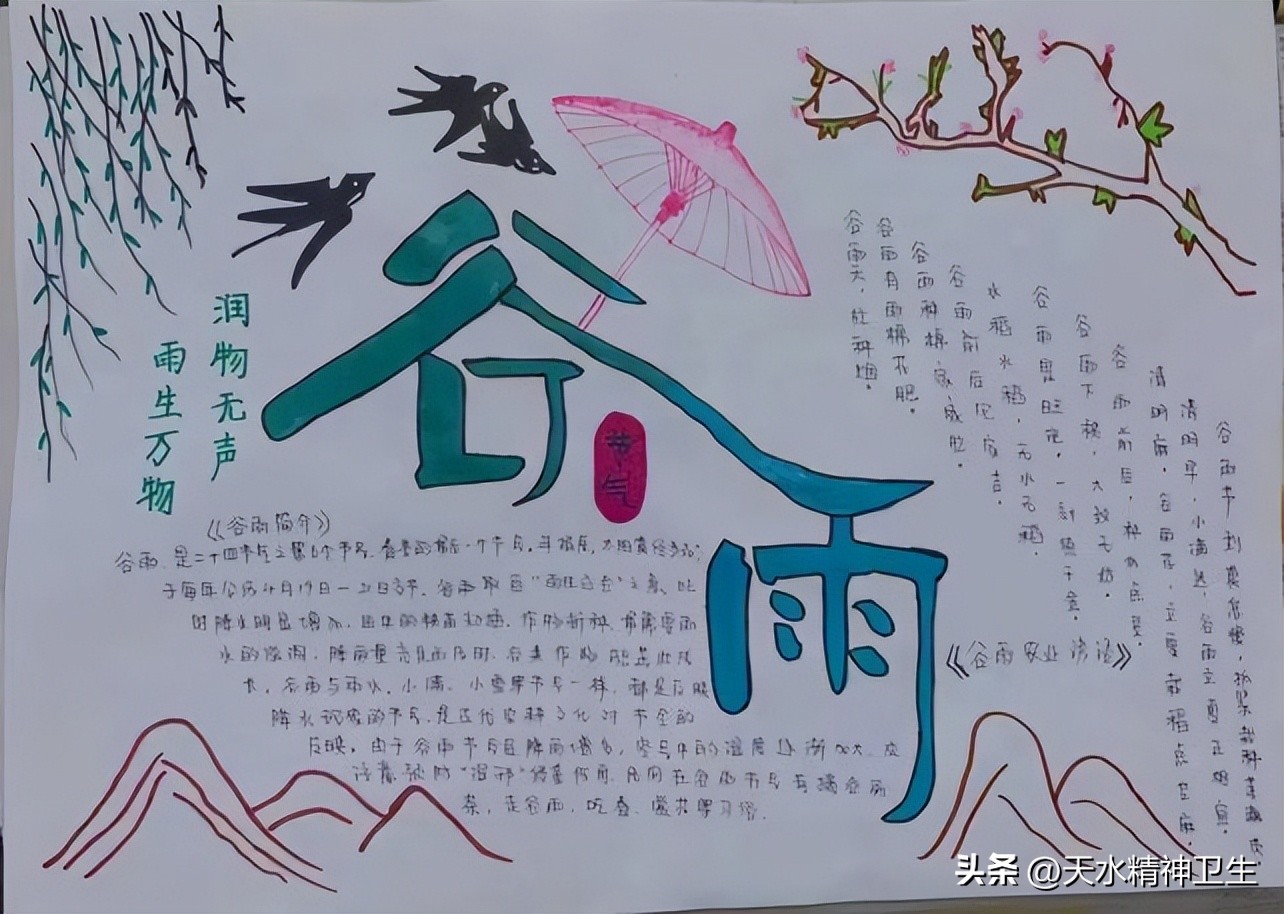 润物无声
雨生万物
谷雨
节气
《谷雨简介》
谷雨,是二十四节气之第6个节气,春季的最后一个节气,斗指辰,太阳黄经为30°,
于每年公历4月19日—21日交节。谷雨取自"雨生百谷"之意,此
时降水明显增加,田中的秧苗初插、作物新种,最需要雨
水的滋润,降雨量充足而及时,谷类作物能茁壮成
长。谷雨与雨水、小满、小雪等节气一样,都是反映
降水现象的节气,是古代农耕文化对节令的
反映。由于谷雨节气后降雨增多,空气中的湿度逐渐加大
民间在谷雨节气有摘谷雨
茶,走谷雨,吃春,赏花等习俗。
谷雨天,忙种烟。
谷雨有雨棉花肥。
谷雨种棉家家忙。
谷雨前后见
水稻水稻,无水无稻。
谷雨
谷雨下秧,大致无妨。
谷雨前后,种瓜点豆。
清明麻,谷雨花,立夏栽稻点芝麻。
清明早,小满迟,谷雨立夏正相宜。
谷雨节到莫怠慢,抓紧栽种
《谷雨农业谚语》
头条 @天水精神卫生